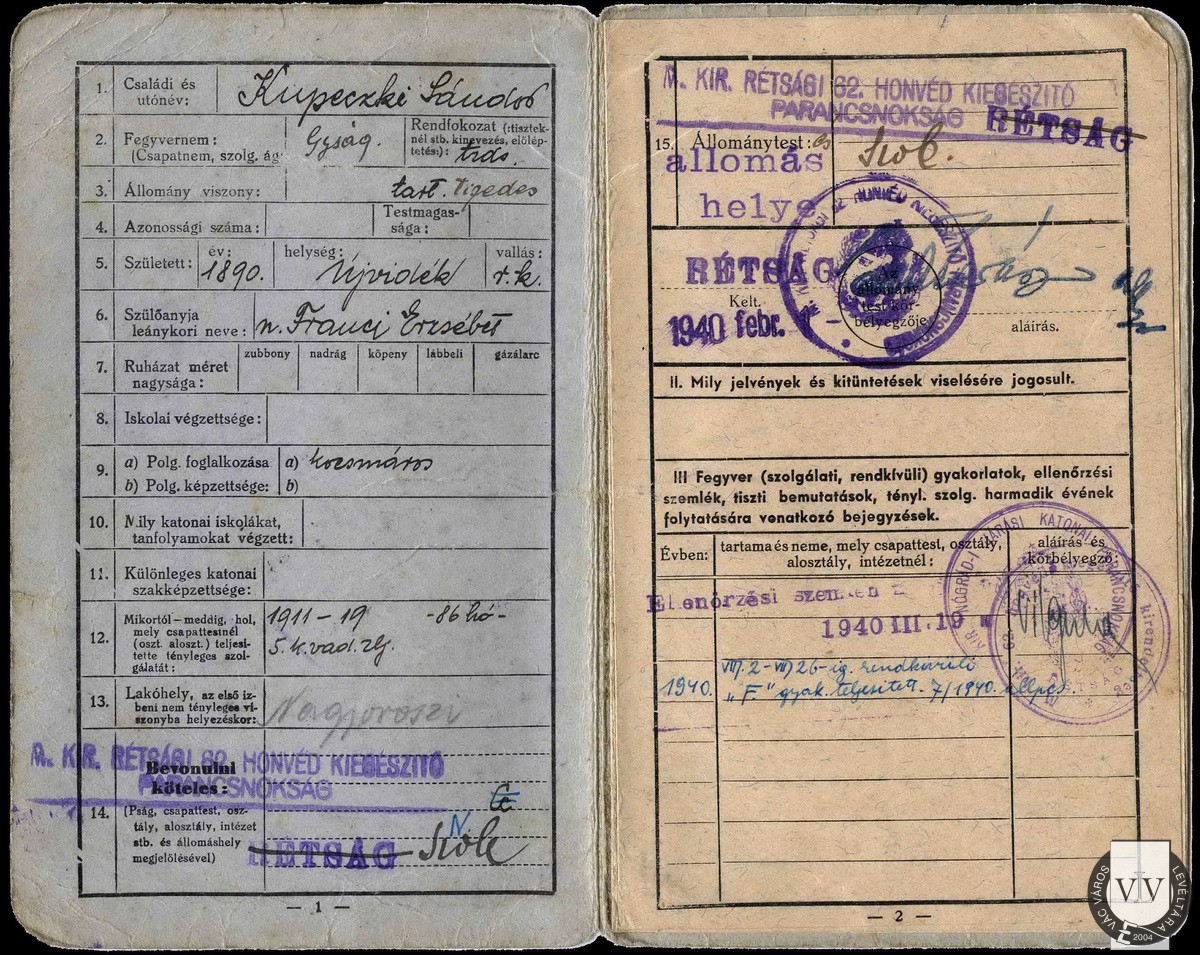 1. Családi és utónév: Kupeczki Sándor
2. Fegyvernem: (Csapatnem, szolg. ág: Gyság.
Rendfokozat (:tisztek-
nél stb. kinevezés, előlép-
tetés:) : trds.
3. Állomány viszony: tart. tizedes
4. Azonossági száma:
Testmagas-
sága:
5. Született: év: 1890. helység: Újvidék vallás: r. k.
6. Szülőanyja
leánykori neve: n. Franci Erzsébet
7. Ruházat méret
nagysága:
zubbony nadrág köpeny lábbeli gázálarc
8. Iskolai végzettsége:
9. a) Polg. foglalkozása a) kocsmáros
b) Polg. képzettsége: b)
10. Mily katonai iskolákat,
tanfolyamokat végzett:
11. Különleges katonai
szakképzettsége:
12. Mikortól – meddig, hol,
mely csapattestnél
(oszt. aloszt.) teljesi-
tette tényleges szol-
gálatát:
1911 – 19 -86 hó-
5. k. vad. zlj.
13. Lakóhely, az első iz-
beni nem tényleges vi-
szonyba helyezéskor: Nagyoroszi
M. KIR. RÉTSÁGI 62. HONVÉD KIEGÉSZITŐ
PARANCSNOKSÁG
14. Bevonulni
köteles:
(Pság, csapattest, osz-
tály, alosztály, intézet
stb. és állomáshely
megjelölésével)
RÉTSÁG
— 1 —
M. KIR. RÉTSÁGI 62. HONVÉD KIEGÉSZITŐ
PARANCSNOKSÁG
RÉTSÁG
15. Állománytest: és
allomás
helye
Szob.
RÉTSÁG
Kelt.
1940 febr.
Az
állomány
test kör-
bélyegzője
aláírás.
II. Mily jelvények és kitüntetések viselésére jogosult.
III Fegyver (szolgálati, rendkívüli) gyakorlatok, ellenőrzési
szemlék, tiszti bemutatások, tényl. szolg. harmadik évének
folytatására vonatkozó bejegyzések.
Évben:
tartama és neme, mely csapattest, osztály,
alosztály, intézetnél:
aláírás és
körbélyegző
Ellenőrzési szemlén
1940 III. 19
1940. VIII. 2 - VIII 26-ig. rendkívüli
"F." gyak. teljesitett. 7/1940.
— 2 —
VÁC VÁROS LEVÉLTÁRA
VLV
2004